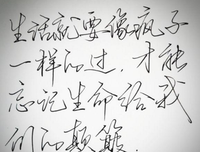 生活就要像疯子
一样的过，才能
忘记生命给我
们的颠簸.